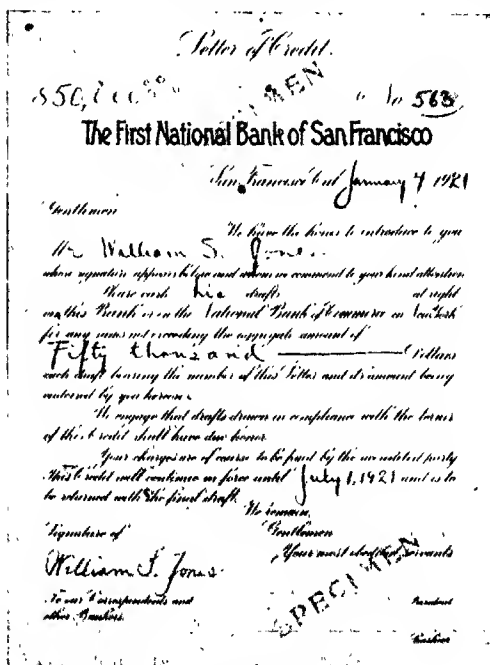 Letter of Credit.
$50,000 00/00 SPECIMEN No 563
The First National Bank of San Francisco
San Francisco Cal January 4 1921
Gentlemen
We have the honor to introduce to you
Mr William S. Jones
whose signature appears below and whom we commend to your kind attention
Please cash his drafts at sight
on this Bank or on the National Bank of Commerce in New York
for any sums not exceeding the aggregate amount of
Fifty thousand Dollars
each draft bearing the number of this Letter and its amount being
endorsed by you hereon.
We engage that drafts drawn in compliance with the terms
of this Credit shall have due honor
Your charges are of course to be paid by the accredited party
This Credit will continue in force until July 1, 1921 and is to
be returned with the final draft.
We remain,
Signature of Gentlemen
Your most obedient servants
William S. Jones
SPECIMEN
To our Correspondents and President
other Bankers.
Cashier